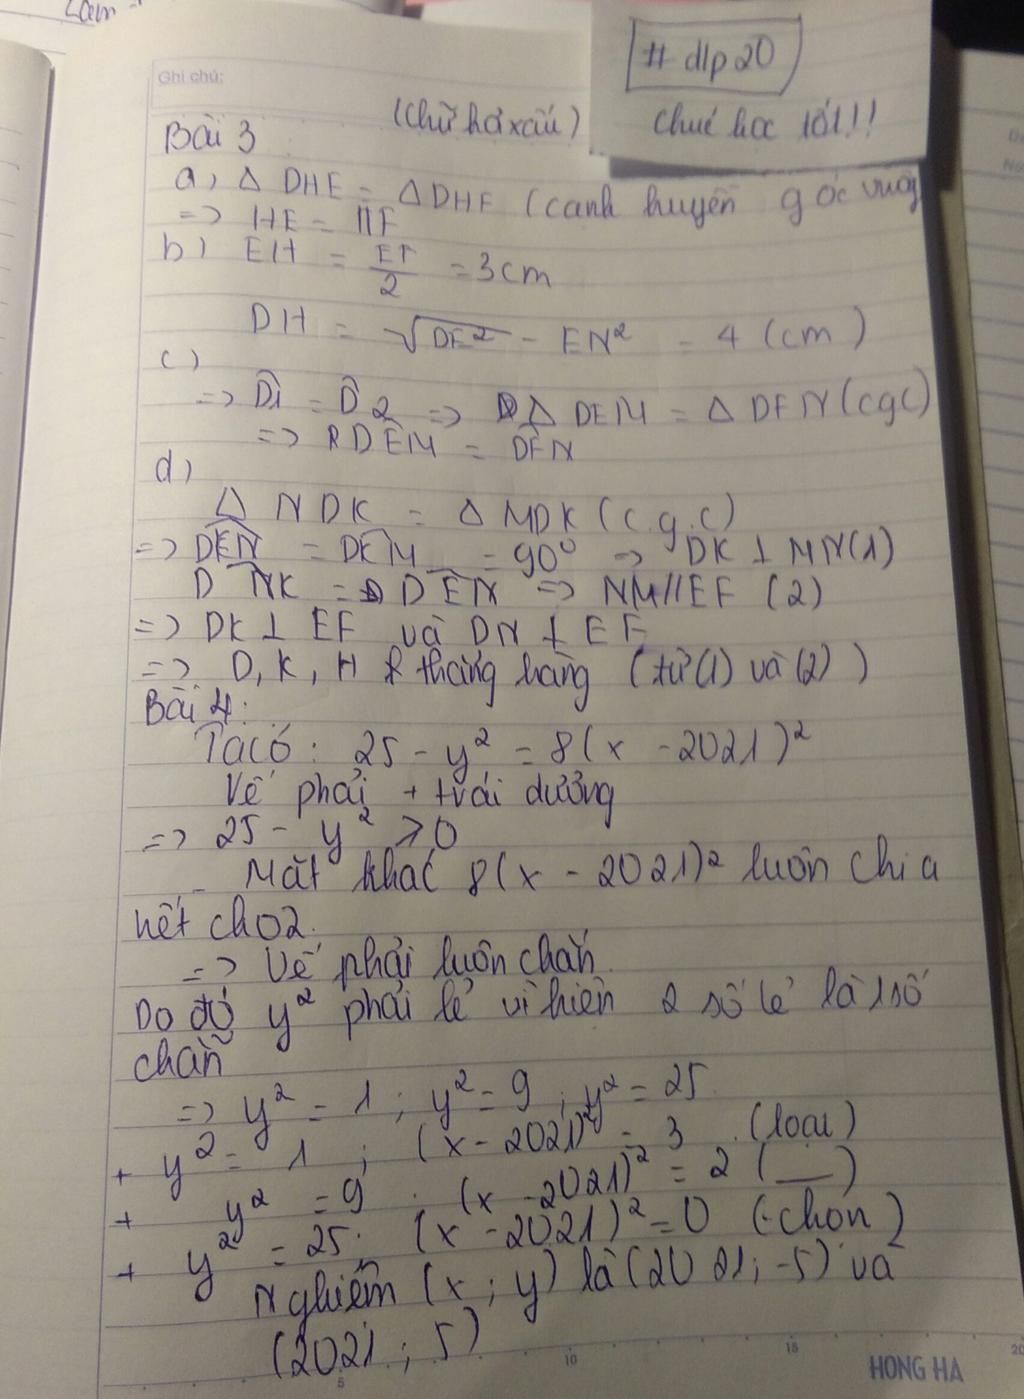 Ghi chú:
# dlp20
Chúc học tốt!!!
(Chữ hơi xấu)
Bài 3
a, Δ DHE = Δ DHF (cạnh huyền góc vuông
=> HE = HF
b) EH = EF/2 = 3cm
DH = √DE² - EH² = 4 (cm)
c)
=> D̂1 = D̂2 => Δ DEM = Δ DFN (cgc)
=> DÊM = DF̂N
d)
Δ NDK = Δ MDK (c.g.c)
=> DKN = DKM = 90° => DK ⊥ MN (1)
DNK = DEN => NM // EF (2)
=> DK ⊥ EF và DN ⊥ EF
=> D, K, H thẳng hàng (từ (1) và (2))
Bài 4:
Ta có: 25 - y² = 8(x - 2021)²
Vế phải + trái dương
=> 25 - y² ≥ 0
- Mặt khác 8(x - 2021)² luôn chia
hết cho 2.
=> Vế phải luôn chẵn.
Do đó y² phải lẻ vì hiệu 2 số lẻ là 1 số
chẵn
=> y² = 1; y² = 9; y² = 25
+ y² = 1; (x - 2021)² = 3 (loại)
+ y² = 9; (x - 2021)² = 2 (__)
+ y² = 25; (x - 2021)² = 0 (chọn)
Nghiệm (x; y) là (2021; -5) và
(2021; 5)
5 10 15 20
HONG HA